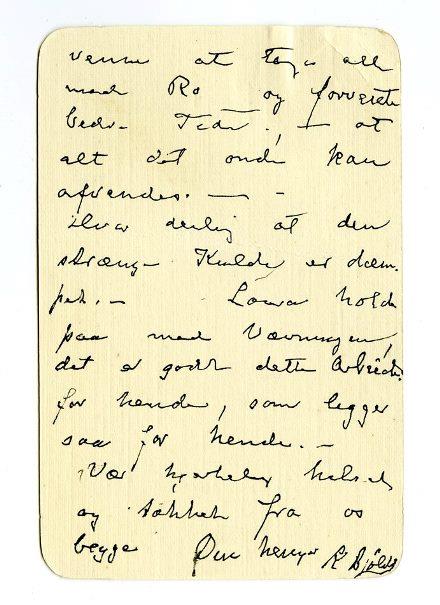 venne at tage alt
med Ro og forvente
bedre Tider, — at
alt det onde kan
afvendes. — -
Hvor deilig at den
strenge Kulde er dæm-
pet. — Laura holde
paa med Vævningen,
det er godt dette Arbeide
for hende, som ligger
saa for hende. —
Vær hjertelig hilset
og takket fra os
begge